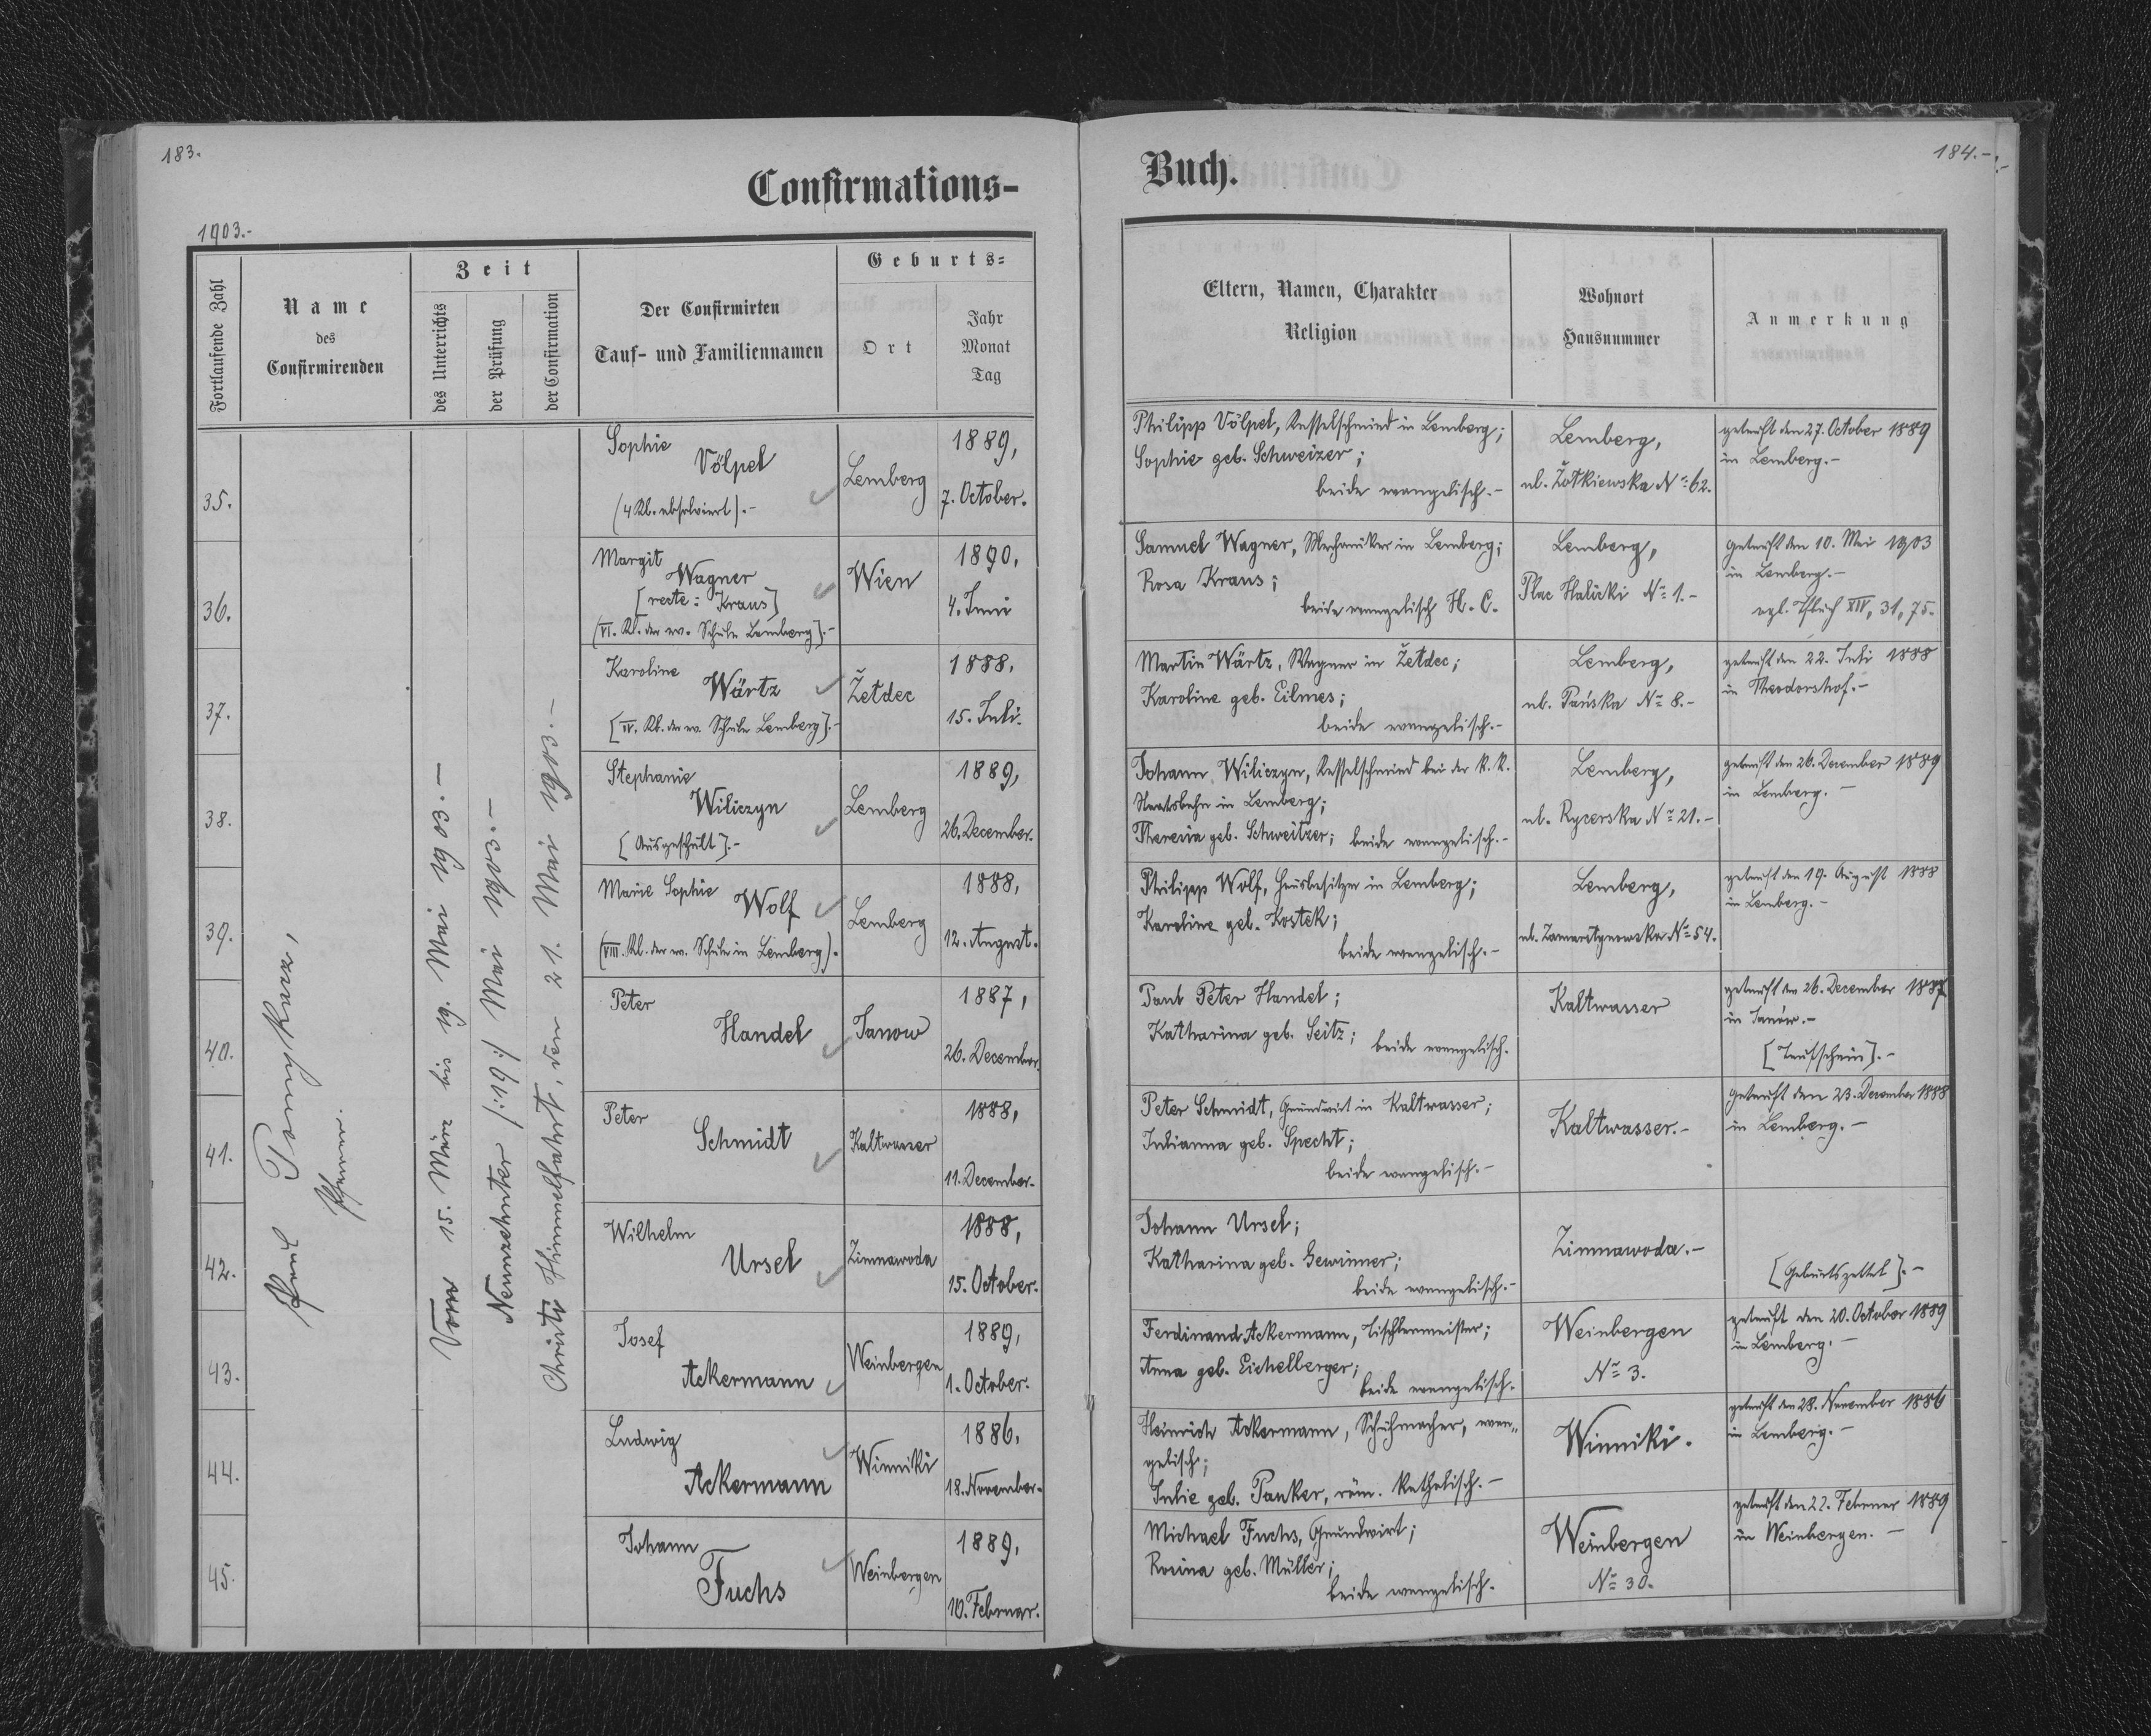 183.
Confirmations-
1903.-
Fortlaufende Zahl
Name
des
Confirmirenden
Zeit
des Unterrichts
der Prüfung
der Confirmation
Der Confirmirten
Tauf- und Familiennamen
Geburts=
Ort
Jahr
Monat
Tag
Pfarrer.
Vom 15. März bis 19. Mai 1903.-
Neunzehnter /:19:/ Mai 1903.-
Christi Himmelfahrt, den 21. Mai 1903.-
35.
Sophie
Völpel
(4 Kl. absolviert).-
Lemberg
1889,
7. October.
36.
Margit
Wagner
[recte: Kraus]
(VI. Kl. der ev. Schule Lemberg).-
Wien
1890.
4. Juni
37.
Karoline
Wärtz
[IV. Kl. der ev. Schule Lemberg].-
Žetdec
1888.
15. Juli.
38.
Stephanie
Wiliczyn
[Ausgeschult].-
Lemberg
1889,
26. December.
39.
Marie Sophie
Wolf
(VIII. Kl. der ev. Schule in Lemberg).
Lemberg
1888,
12. August.
40.
Peter
Handel
Janow
1887,
26. December.
41.
Peter
Schmidt
Kaltwasser
1888,
11. December.
42.
Wilhelm
Ursel
Zimnawoda
1888,
15. October.
43.
Josef
Ackermann
Weinbergen
1889,
1. October.
44.
Ludwig
Ackermann
Winniki
1886.
18. November.
45.
Johann
Fuchs
Weinbergen
1889,
10. Februar.
Buch.
184.-
Eltern, Namen, Charakter
Religion
Wohnort
Hausnummer
Anmerkung
Philipp Völpel, Kesselschmied in Lemberg;
Sophie geb. Schweizer;
beide evangelisch.-
Lemberg,
ul. Żółkiewska No 62.
getauft den 27. October 1889
in Lemberg.-
Samuel Wagner, Mechaniker in Lemberg;
Rosa Kraus;
beide evangelisch H. C.
Lemberg,
Plac Halicki No 1.-
getauft den 10. Mai 1903
in Lemberg.-
vgl. Tfbuch XIV, 31, 75.
Martin Wärtz, Wagner in Žetdec;
Karoline geb. Eilmes;
beide evangelisch.-
Lemberg,
ul. Pańska No 8.-
getauft den 22. Juli 1888
in Theodorshof.-
Johann Wiliczyn, Kesselschmied bei der k. k.
Staatsbahn in Lemberg;
Theresia geb. Schweitzer; beide evangelisch.-
Lemberg,
ul. Rycerska No 21.-
getauft den 26. December 1889
in Lemberg.-
Philipp Wolf, Hausbesitzer in Lemberg;
Karoline geb. Kostek;
beide evangelisch.-
Lemberg,
ul. Zamarstynowska No 54.
getauft den 19. August 1888
in Lemberg.-
Paul Peter Handel;
Katharina geb. Seitz; beide evangelisch.
Kaltwasser
getauft den 26. December 1887
in Janów.-
[Taufschein].-
Peter Schmidt, Grundwirt in Kaltwasser;
Julianna geb. Specht;
beide evangelisch.-
Kaltwasser.-
getauft den 23. December 1888
in Lemberg.-
Johann Ursel;
Katharina geb. Gewinner;
beide evangelisch.-
Zimnawoda.-
[Geburtszettel].-
Ferdinand Ackermann, Tischlermeister;
Anna geb. Eichelberger;
beide evangelisch.
Weinbergen
No 3.
getauft den 20. October 1889
in Lemberg.-
Heinrich Ackermann, Schuhmacher, evan„
gelisch;
Julie geb. Panker, röm. katholisch.-
Winniki.
getauft den 28. November 1886
in Lemberg.-
Michael Fuchs, Grundwirt;
Rosina geb. Müller;
beide evangelisch.
Weinbergen
No 30.
getauft den 22. Februar 1889
in Weinbergen.-